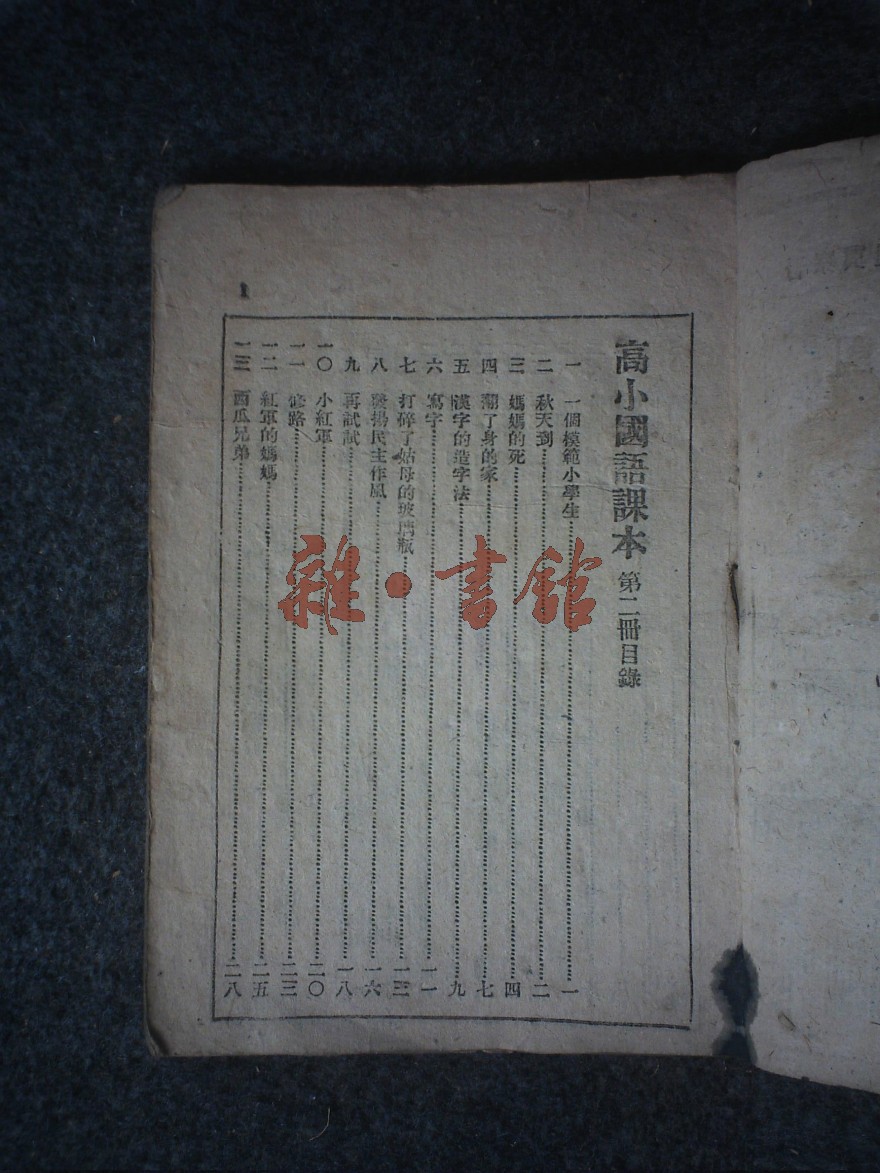 高小國語課本 第二冊目錄
一 一個模範小學生 一
二 秋天到 二
三 媽媽的死 四
四 翻了身的家 七
五 漢字的造字法 九
六 寫字 一一
七 打碎了姑母的玻璃瓶 一三
八 發揚民主作風 一六
九 再試試 一八
一〇 小紅軍 二〇
一一 修路 二三
一二 紅軍的媽媽 二五
一三 西瓜兄弟 二八
1
雜·書館